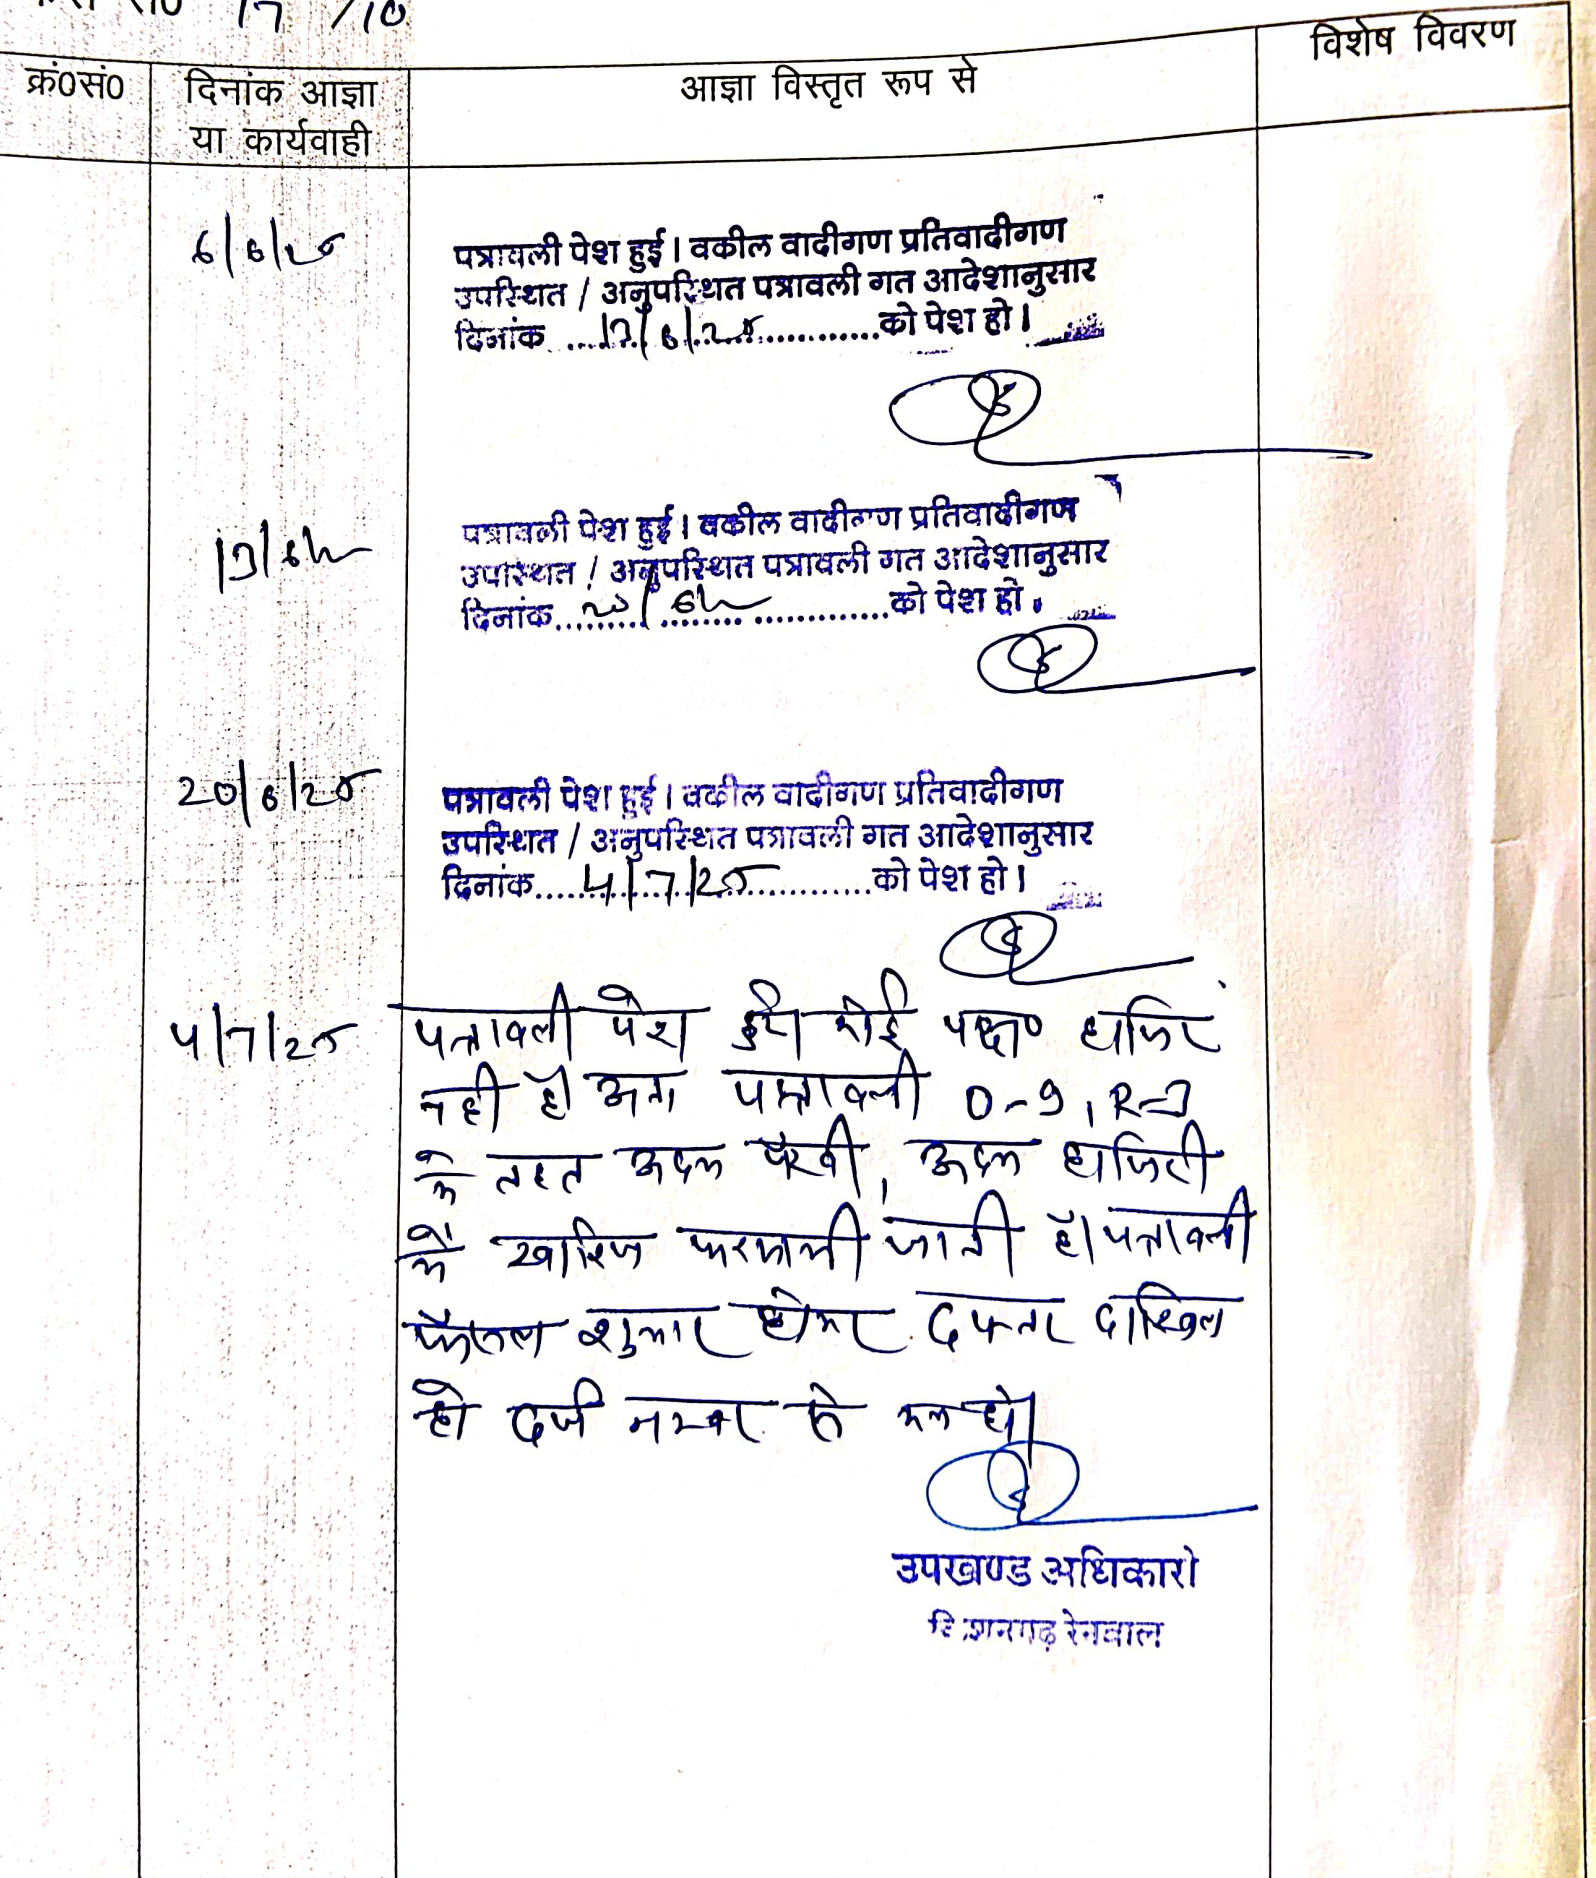 17 /10
विशेष विवरण
क्रं0सं0 दिनांक आज्ञा आज्ञा विस्तृत रूप से
या कार्यवाही
6/6/25 पत्रावली पेश हुई। वकील वादीगण प्रतिवादीगण
उपस्थित / अनुपस्थित पत्रावली गत आदेशानुसार
दिनांक ....13/6/25............को पेश हो।
13/6/25 पत्रावली पेश हुई। वकील वादीगण प्रतिवादीगण
उपस्थित / अनुपस्थित पत्रावली गत आदेशानुसार
दिनांक....20/6/25............को पेश हो।
20/6/25 पत्रावली पेश हुई। वकील वादीगण प्रतिवादीगण
उपस्थित / अनुपस्थित पत्रावली गत आदेशानुसार
दिनांक....4/7/25............को पेश हो।
4/7/25 पत्रावली पेश हुई। कोई पक्ष हाजिर
नही है। अतः पत्रावली 0-9, R-3
के तहत अदम पैरवी, अदम हाजिरी
में खारिज फरमायी जाती है। पत्रावली
फैसल शुमार होकर दफ्तर दाखिल
हो दर्ज नम्बर से कम हो।
उपखण्ड अधिकारी
किशनगढ़ रेनवाल